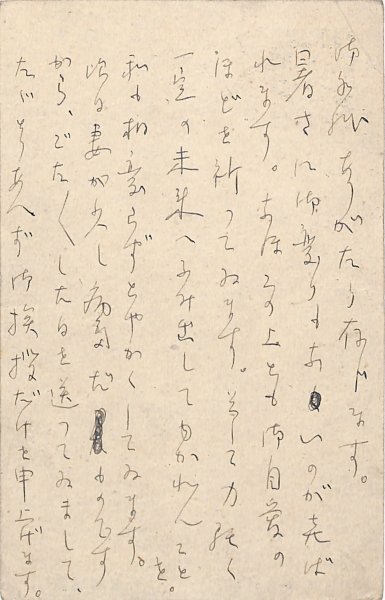 御手紙ありがたう存じます。
暑さに御変りもないのが喜ば
れます。なほこの上とも御自愛の
ほどを祈つてゐます。そして力強く
一定の未来へふみ出してゆかれんことを。
私も相変らずとやかくしてゐます。
妻が少し病気だものです
から、ごたごたした日を送つてゐまして、
たゞとりあへず御挨拶だけを申上げます。